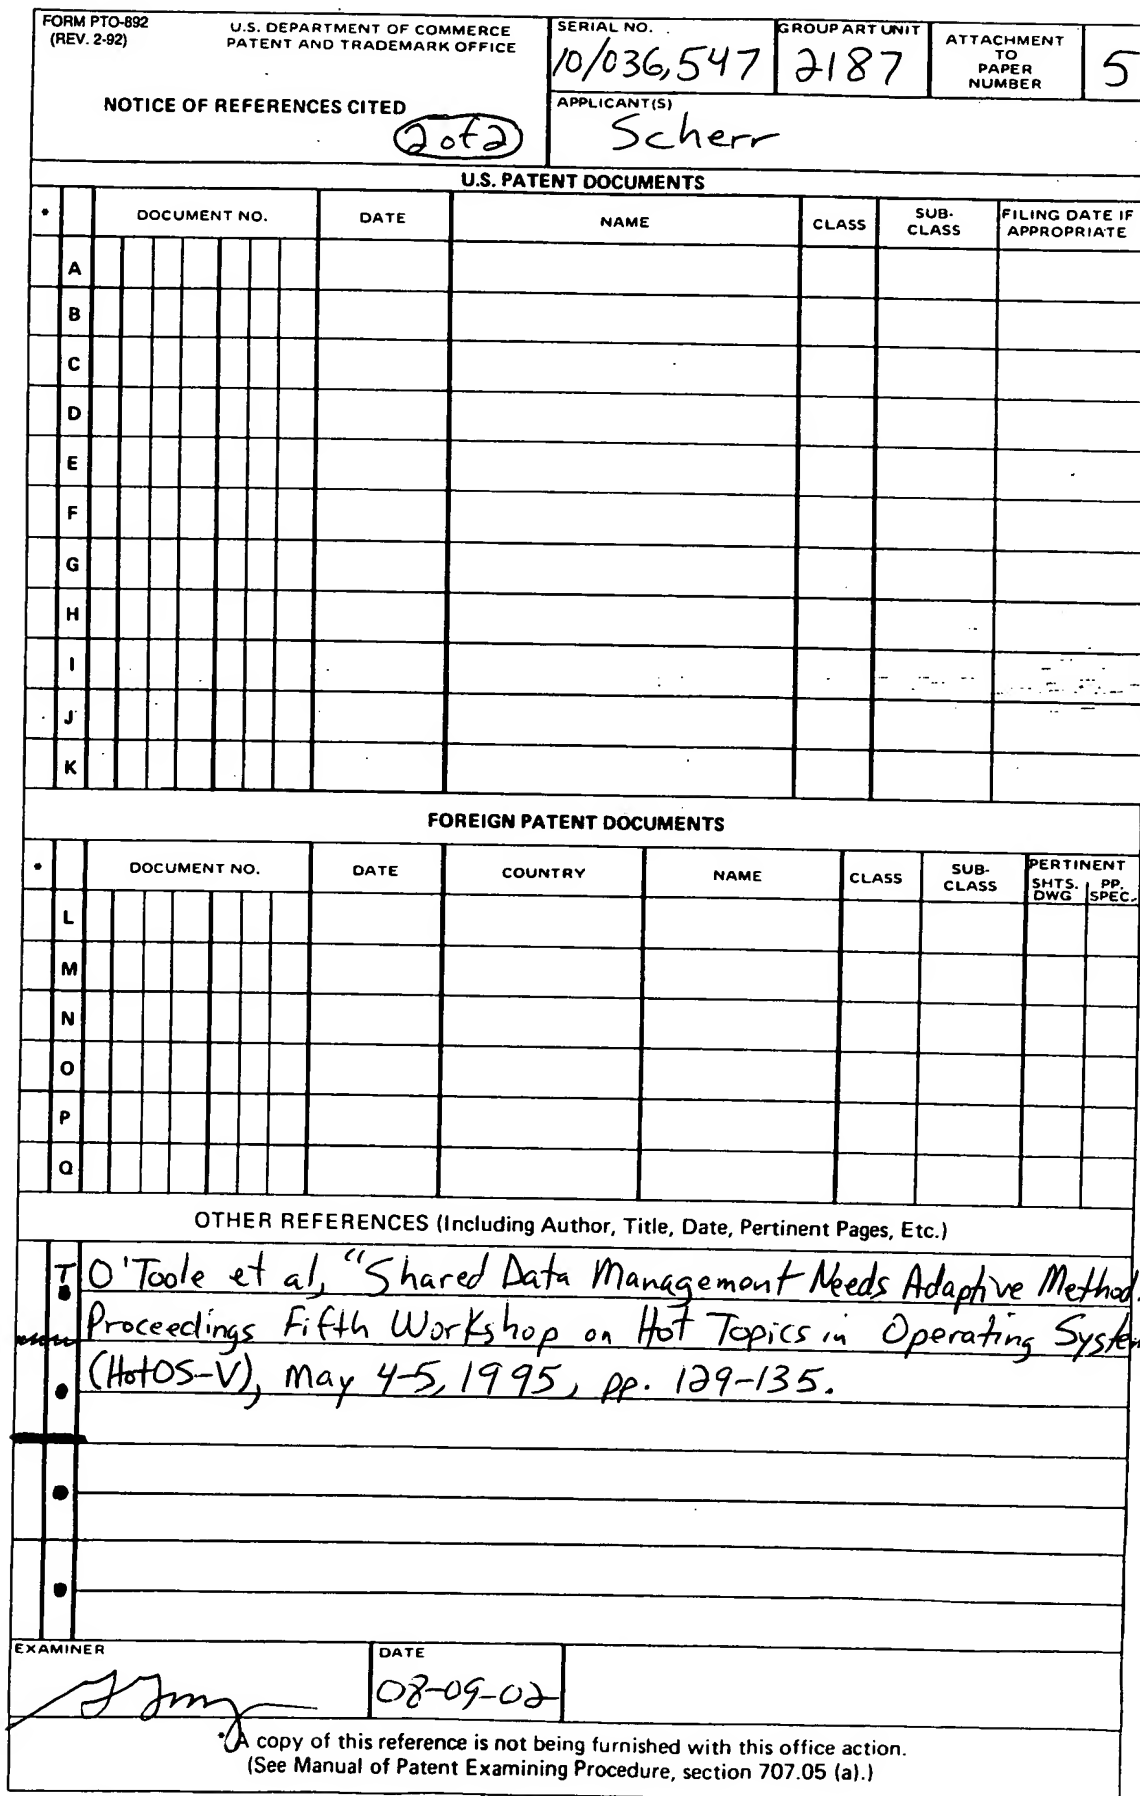 FORM PTO-892
(REV. 2-92)
U.S. DEPARTMENT OF COMMERCE
PATENT AND TRADEMARK OFFICE
NOTICE OF REFERENCES CITED
2 of 2
SERIAL NO.
10/036,547
GROUP ART UNIT
2187
ATTACHMENT
TO
PAPER
NUMBER
5
APPLICANT(S)
Scherr
U.S. PATENT DOCUMENTS
* DOCUMENT NO. DATE NAME CLASS SUB-CLASS FILING DATE IF APPROPRIATE
A
B
C
D
E
F
G
H
I
J
K
FOREIGN PATENT DOCUMENTS
* DOCUMENT NO. DATE COUNTRY NAME CLASS SUB-CLASS PERTINENT SHTS. DWG PP. SPEC.
L
M
N
O
P
Q
OTHER REFERENCES (Including Author, Title, Date, Pertinent Pages, Etc.)
T O'Toole et al, "Shared Data Management Needs Adaptive Method
Proceedings Fifth Workshop on Hot Topics in Operating System
(HotOS-V), May 4-5, 1995, pp. 129-135.
EXAMINER
DATE
08-09-02
* A copy of this reference is not being furnished with this office action.
(See Manual of Patent Examining Procedure, section 707.05 (a).)